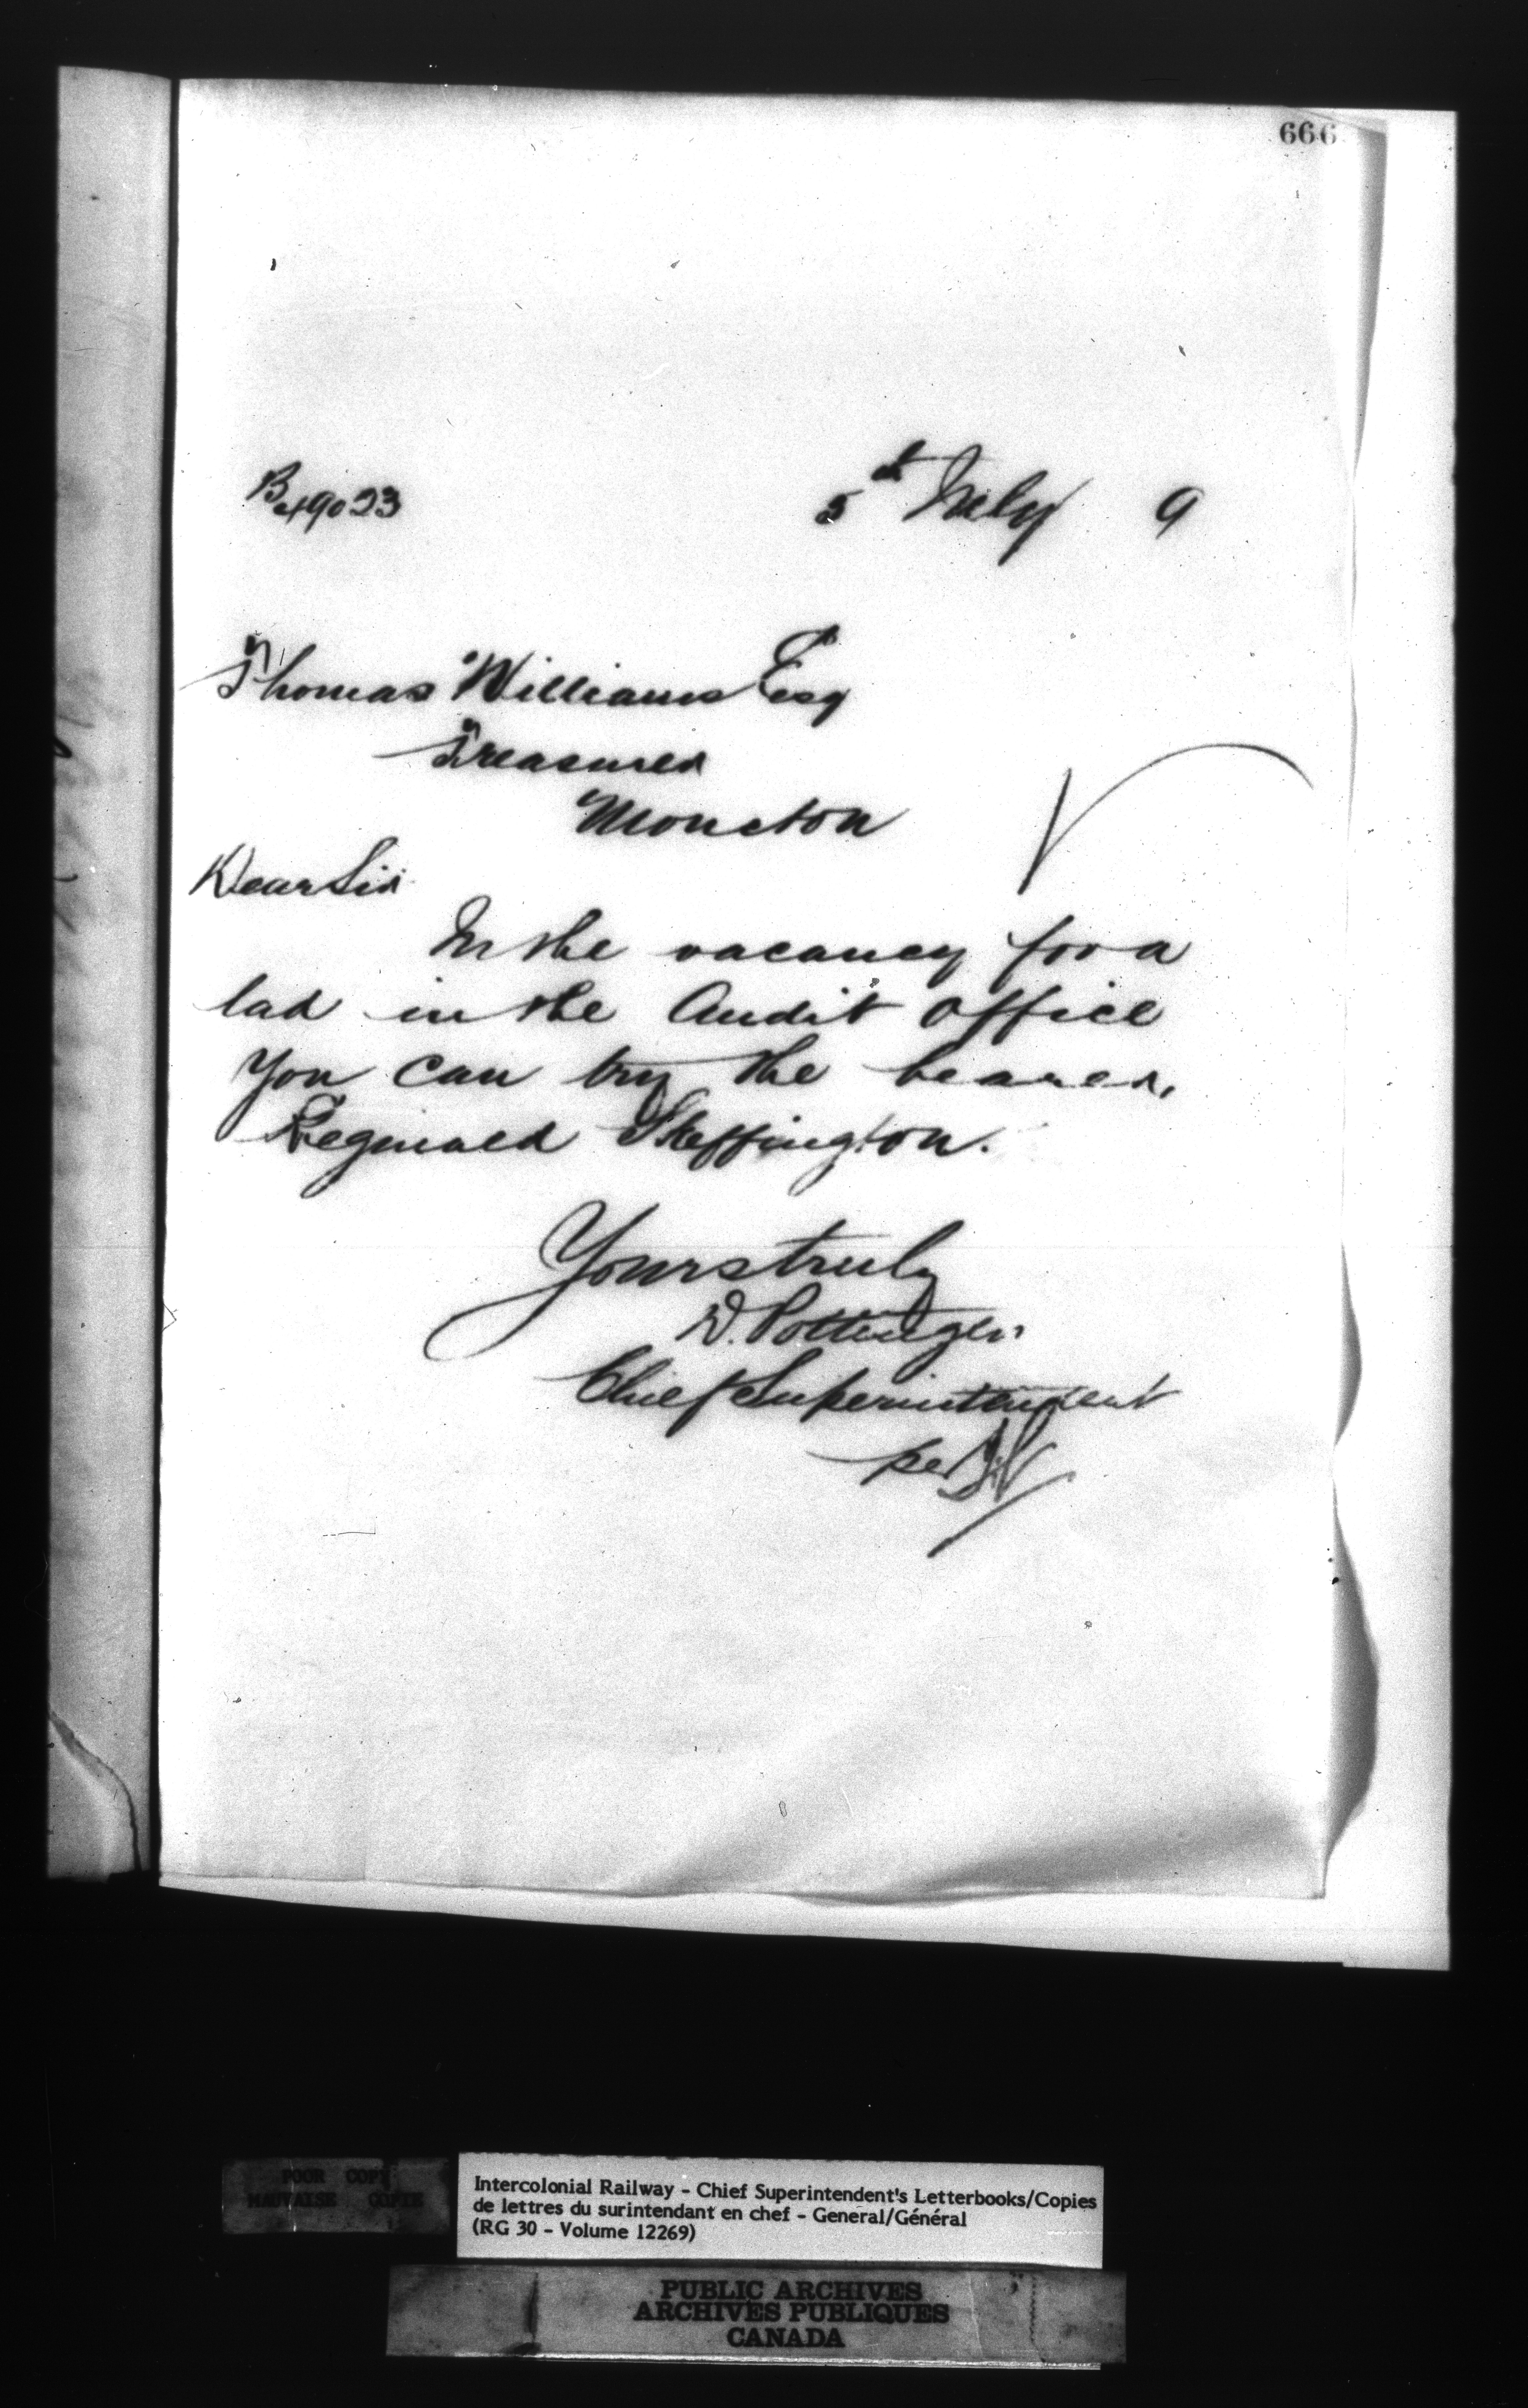 666
B 49023
5th July 9
Thomas Williams Esq
Treasurer
Moncton
Dear Sir
In the vacancy for a
lad in the Audit Office
you can try the bearer,
Reginald Skeffington.
Yours truly
D. Pottinger
Chief Superintendent
per
POOR COPY
MAUVAISE COPIE
Intercolonial Railway - Chief Superintendent's Letterbooks/Copies
de lettres du surintendant en chef - General/Général
(RG 30 - Volume 12269)
PUBLIC ARCHIVES
ARCHIVES PUBLIQUES
CANADA